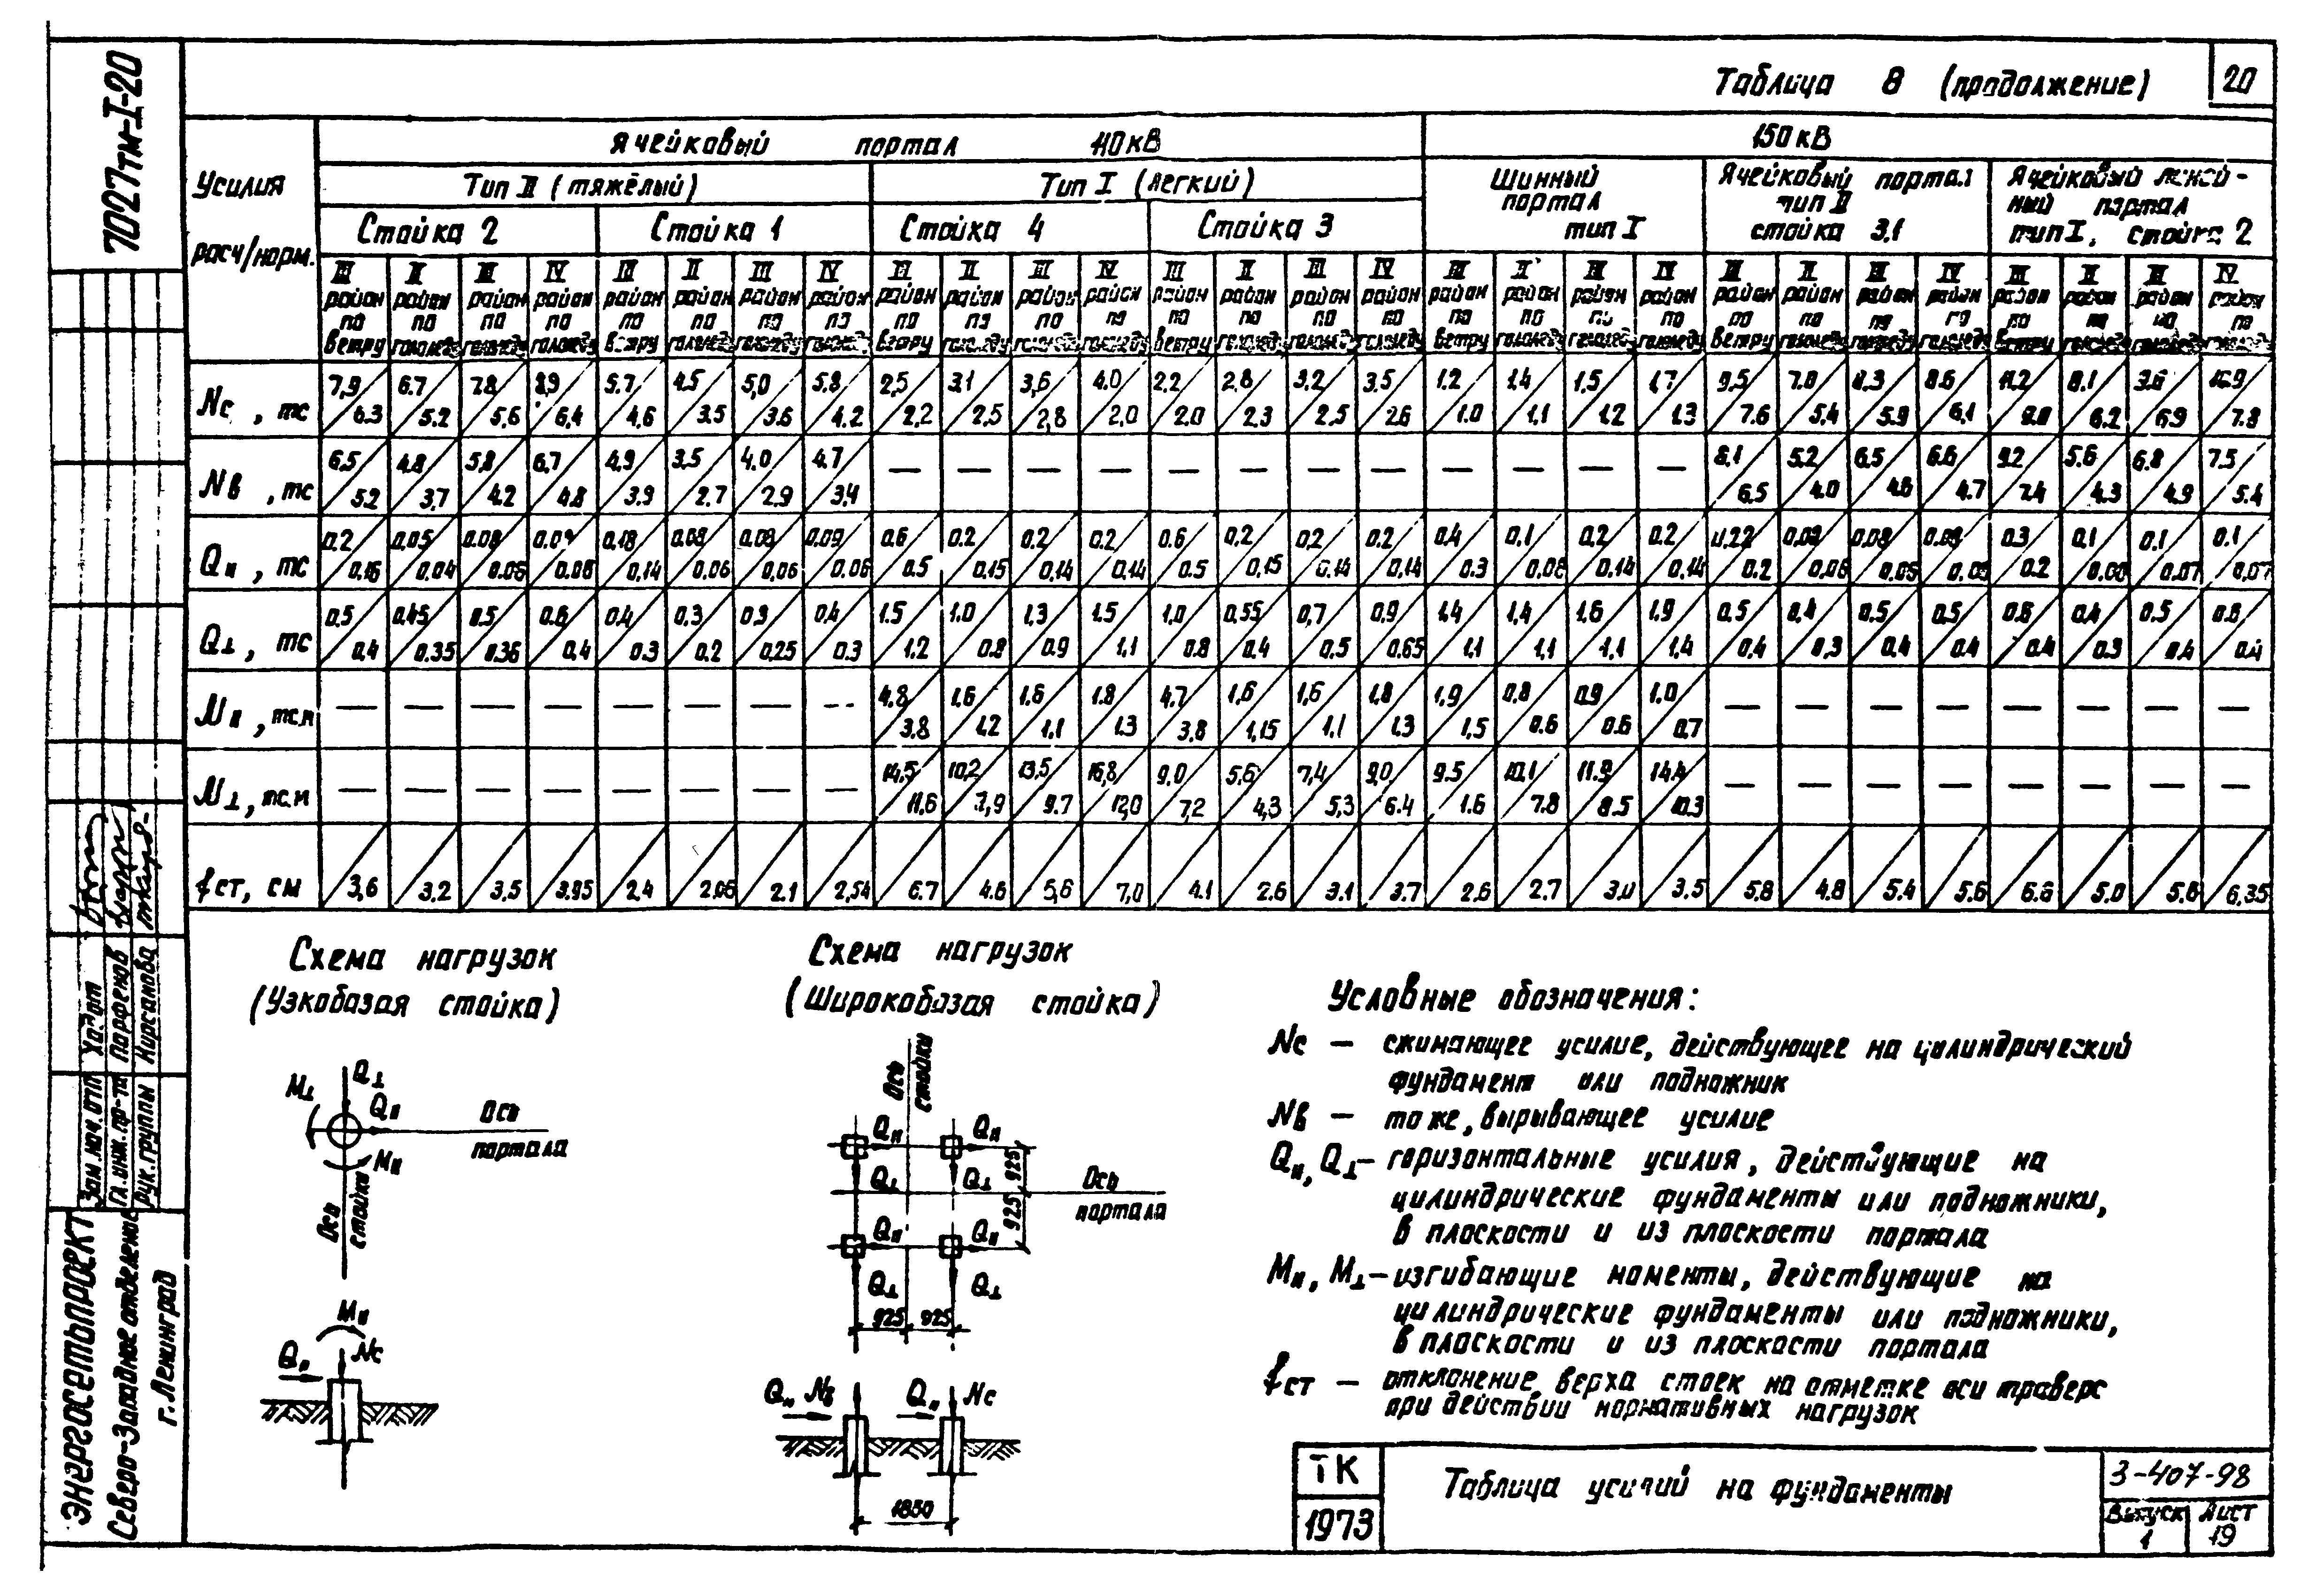 7027тм-I-20
Таблица 8 (продолжение) 20
Усилия расч/норм.
Ячейковый портал 110кВ
150кВ
Тип II (тяжёлый) Тип I (легкий)
Шинный портал тип I
Ячейковый портал тип II стойка 3.1
Ячейковый линей-ный портал тип I, стойка 2
Стойка 2 Стойка 1 Стойка 4 Стойка 3
III район по ветру II район по гололеду III район по гололеду IV район по гололеду III район по ветру II район по гололеду III район по гололеду IV район по гололеду III район по ветру II район по гололеду III район по гололеду IV район по гололеду III район по ветру II район по гололеду III район по гололеду IV район по гололеду III район по ветру II район по гололеду III район по гололеду IV район по гололеду III район по ветру II район по гололеду III район по гололеду IV район по гололеду III район по ветру II район по гололеду III район по гололеду IV район по гололеду
Nс, тс 7,9/6.3 6.7/5.2 7.8/5,6 8,9/6,4 5.7/4,6 4.5/3.5 5,0/3.6 5.8/4.2 2,5/2,2 3.1/2,5 3,6/2,8 4.0/2,0 2.2/2.0 2,8/2.3 3.2/2.5 3.5/2.6 1.2/1.0 1.4/1,1 1,5/1.2 1,7/1.3 9,5/7.6 7.0/5,4 8.3/5.9 8.6/6,1 11.2/9.0 8.1/6.2 /6,9 /7.8
Nв, тс 6,5/5.2 4.8/3,7 5,8/4.2 6,7/4.8 4,9/3.9 3,5/2.7 4,0/2,9 4.7/3,4 — — — — — — — — — — — — 8,1/6,5 5.2/4.0 6,5/4.6 6.6/4.7 9.2/7.4 5.6/4.3 6,8/4.9 7.5/5.4
Qıı, тс 0.2/0,16 0.05/0.04 0.08/0.06 0.09/0.06 0.18/0,14 0.08/0.06 0.08/0,06 0.09/0.06 0.6/0.5 0.2/0,15 0.2/0,14 0.2/0,14 0.6/0.5 0,2/0,15 0,2/0,14 0.2/0,14 0,4/0.3 0.1/0,08 0,2/0,14 0.2/0,14 0,22/0.2 0,09/0,06 0,08/0,05 0.08/0.05 0.3/0.2 0,1/ 0.1/0,07 0.1/0,07
Q⊥, тс 0.5/0.4 0.45/0.35 0.5/0.36 0.6/0,4 0.4/0.3 0.3/0.2 0.3/0.25 0,4/0.3 1.5/1.2 1.0/0.8 1,3/0.9 1.5/1,1 1,0/0.8 0,55/0.4 0,7/0,5 0,9/0.65 1.4/1,1 1,4/1,1 1.6/1,1 1.9/1,4 0.5/0,4 0.4/0,3 0.5/0.4 0.5/0.4 0.6/0.4 0.4/0.3 0.5/0.4 /0.4
Mıı, тс.м — — — — — — — — 4.8/3.8 1.6/1.2 1.6/1,1 1.8/1.3 4.7/3,8 1,6/1,15 1,6/1,1 1,8/1.3 1,9/1,5 0,8/0.6 0.9/0.6 1.0/0,7 — — — — — — — —
M⊥, тс.м — — — — — — — — 14,5/11,6 10,2/7,9 13,5/9.7 16,8/12,0 9,0/7,2 5,6/4,3 7,4/5,3 9,0/6.4 9.5/ 10,1/7.8 11.9/8.5 14.4/10.3 — — — — — — — —
fст, см 3,6 3.2 3.5 3.95 2.4 2.05 2.1 2,54 6.7 4.6 5,6 7,0 4.1 2.6 3.1 3.7 2.6 2.7 3.0 3.5 5.8 4.8 5.4 5.6 6.6 5.0 5.6 6.35
Схема нагрузок
(Узкобазая стойка)
Схема нагрузок
(Широкобазая стойка)
M⊥ Q⊥
Qıı
Ось портала
Mıı
Ось стойки
Mıı
Qıı Nс
Ось стойки
Qıı Qıı
Q⊥ Q⊥
Ось портала
925 925
Qıı Qıı
Q⊥ Q⊥
925 925
Qıı Nв Qıı Nс
1850
Условные обозначения:
Nс — сжимающее усилие, действующее на цилиндрический
фундамент или подножник
Nв — то же, вырывающее усилие
Qıı, Q⊥ — горизонтальные усилия, действующие на
цилиндрические фундаменты или подножники,
в плоскости и из плоскости портала
Mıı, M⊥ — изгибающие моменты, действующие на
цилиндрические фундаменты или подножники,
в плоскости и из плоскости портала
fст — отклонение верха стоек на отметке оси траверс
при действии нормативных нагрузок
ТК
1973
Таблица усилий на фундаменты
3-407-98
Выпуск 1
Лист 19
Зам.нач.отп
Гл.инж.пр-та Парфенов
Рук.группы Кирсанова
ЭНЕРГОСЕТЬПРОЕКТ
Северо-Западное отделение
г.Ленинград